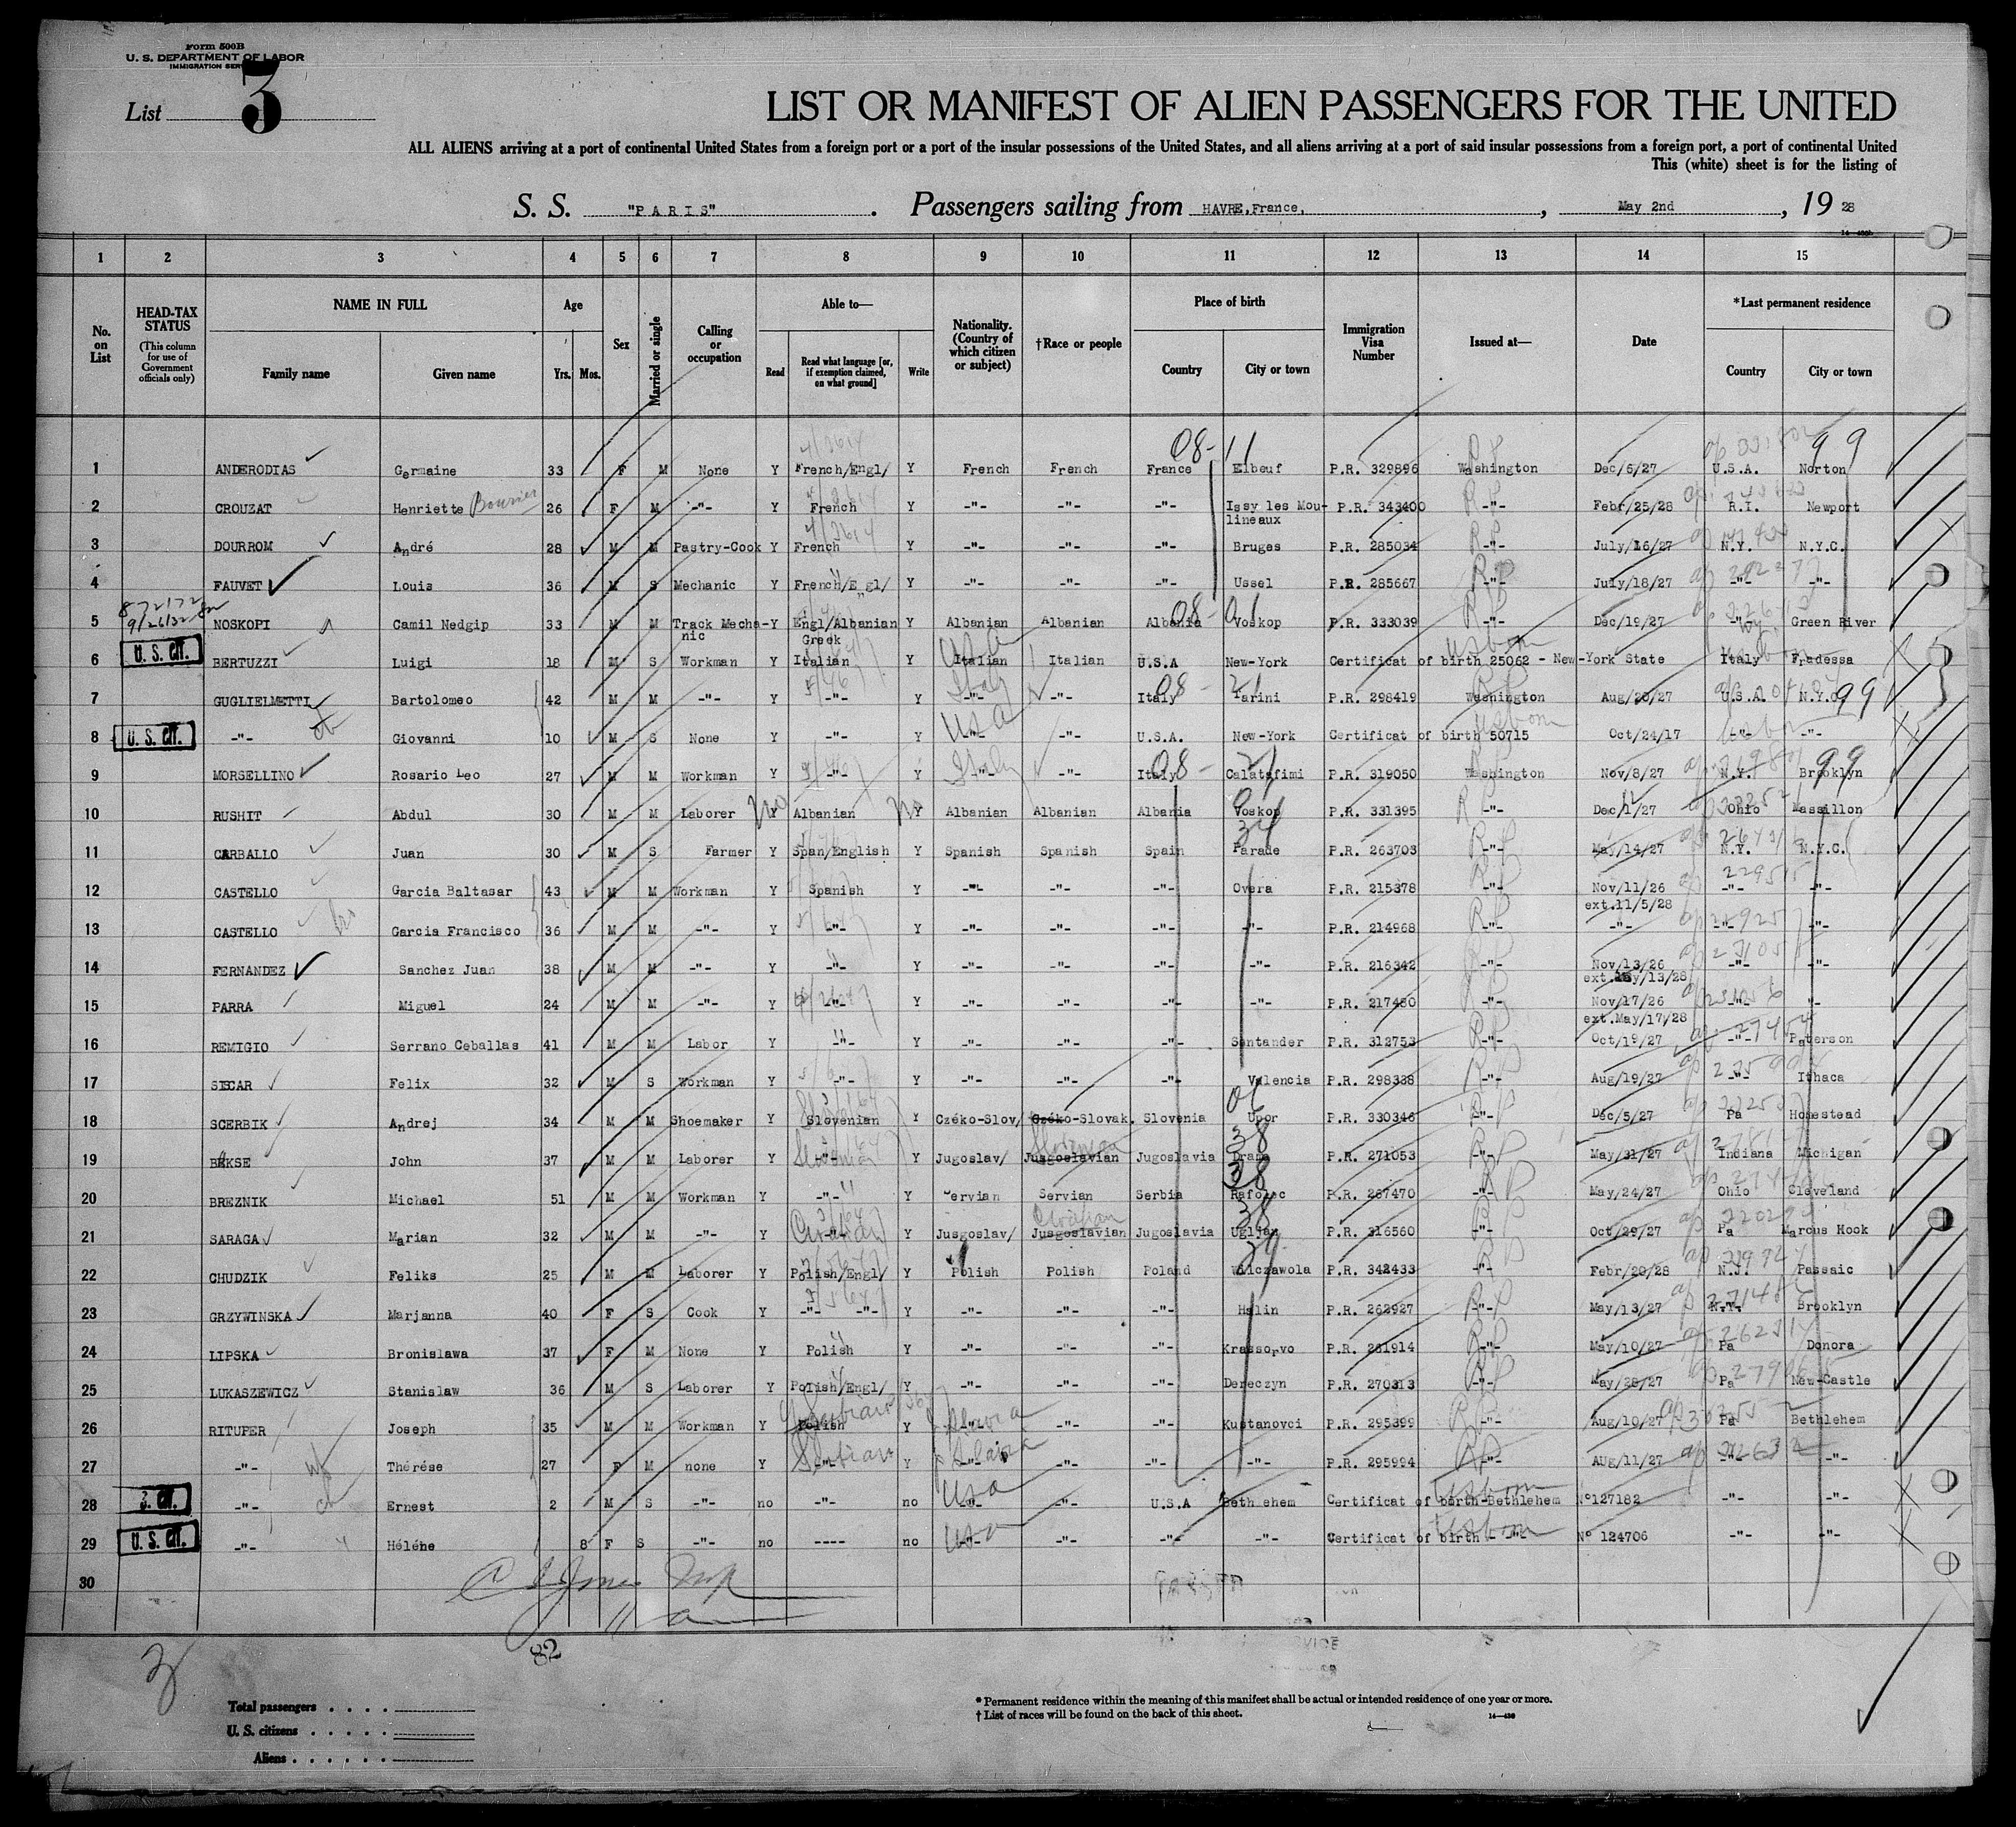 Form 500B
U. S. DEPARTMENT OF LABOR
IMMIGRATION SERVICE
List 3
LIST OR MANIFEST OF ALIEN PASSENGERS FOR THE UNITED
ALL ALIENS arriving at a port of continental United States from a foreign port or a port of the insular possessions of the United States, and all aliens arriving at a port of said insular possessions from a foreign port, a port of continental United
This (white) sheet is for the listing of
S. S. "PARIS". Passengers sailing from HAVRE,France, , May 2nd , 19 28
1 2 3 4 5 6 7 8 9 10 11 12 13 14 15
No. on List
HEAD-TAX STATUS (This column for use of Government officials only)
NAME IN FULL Family name Given name
Age Yrs. Mos.
Sex
Married or single
Calling or occupation
Able to— Read Read what language [or, if exemption claimed, on what ground] Write
Nationality. (Country of which citizen or subject)
†Race or people
Place of birth Country City or town
Immigration Visa Number
Issued at—
Date
*Last permanent residence Country City or town
1 ANDERODIAS Germaine 33 F M None Y French/Engl/ Y French French France Elbeuf P.R. 329896 Washington Dec/6/27 U.S.A. Norton
2 CROUZAT Henriette 26 F M -"- Y French Y -"- -"- -"- Issy les Mou-lineaux P.R. 343400 -"- Febr/25/28 R.I. Newport
3 DOURROM André 28 M M Pastry-Cook Y French Y -"- -"- -"- Bruges P.R. 285034 -"- July/16/27 N.Y. N.Y.C.
4 FAUVET Louis 36 M S Mechanic Y French/Engl/ Y -"- -"- -"- Ussel P.R. 285667 -"- July/18/27 -"- -"-
5 NOSKOPI Camil Nedgip 33 M M Track Mecha-nic Y Engl/Albanian Greek Y Albanian Albanian Albania Voskop P.R. 333039 -"- Dec/19/27 -"- Green River
6 U. S. CIT. BERTUZZI Luigi 18 M S Workman Y Italian Y Italian Italian U.S.A New-York Certificat of birth 25062 - New-York State Italy Fradessa
7 GUGLIELMETTI Bartolomeo 42 M M -"- Y -"- Y -"- -"- Italy Tarini P.R. 298419 Washington Aug/20/27 U.S.A. N.Y.C.
8 U. S. CIT. -"- Giovanni 10 M S None Y -"- Y -"- -"- U.S.A. New-York Certificat of birth 50715 Oct/24/17 -"- -"-
9 MORSELLINO Rosario Leo 27 M M Workman Y -"- Y -"- -"- Italy Calatafimi P.R. 319050 Washington Nov/8/27 N.Y. Brooklyn
10 RUSHIT Abdul 30 M M Laborer Y Albanian Y Albanian Albanian Albania Voskop P.R. 331395 -"- Dec/1/27 Ohio Massillon
11 CARBALLO Juan 30 M S Farmer Y Span/English Y Spanish Spanish Spain Parade P.R. 263703 -"- May/14/27 N.Y. N.Y.C.
12 CASTELLO Garcia Baltasar 43 M M Workman Y Spanish Y -"- -"- -"- Overa P.R. 215378 -"- Nov/11/26 ext.11/5/28 -"- -"-
13 CASTELLO Garcia Francisco 36 M M -"- Y -"- Y -"- -"- -"- -"- P.R. 214968 -"- -"- -"- -"-
14 FERNANDEZ Sanchez Juan 38 M M -"- Y -"- Y -"- -"- -"- -"- P.R. 216342 -"- Nov/13/26 ext.May/13/28 -"- -"-
15 PARRA Miguel 24 M M -"- Y -"- Y -"- -"- -"- -"- P.R. 217480 -"- Nov/17/26 ext.May/17/28 -"- "-
16 REMIGIO Serrano Ceballas 41 M M Labor Y -"- Y -"- -"- -"- Santander P.R. 312753 -"- Oct/19/27 -"- Paterson
17 SISCAR Felix 32 M S Workman Y -"- Y -"- -"- -"- Valencia P.R. 298338 -"- Aug/19/27 -"- Ithaca
18 SCERBIK Andrej 34 M M Shoemaker Y Slovenian Y Czéko-Slov/ Czéko-Slovak. Slovenia Upor P.R. 330346 -"- Dec/5/27 Pa Homestead
19 BEKSE John 37 M M Laborer Y -"- Y Jugoslav/ Jusgoslavian Jugoslavia Draga P.R. 271053 -"- May/31/27 Indiana Michigan
20 BREZNIK Michael 51 M M Workman Y -"- Y Servian Servian Serbia Rafolec P.R. 267470 -"- May/24/27 Ohio Cleveland
21 SARAGA Marian 32 M M -"- Y -"- Y Jusgoslav/ Jusgoslavian Jugoslavia Ugljan P.R. 316560 -"- Oct/29/27 Pa Marcus Hook
22 CHUDZIK Feliks 25 M M Laborer Y Polish/Engl/ Y Polish Polish Poland Wolczawola P.R. 342433 -"- Febr/20/28 N.J. Passaic
23 GRZYWINSKA Marjanna 40 F S Cook Y -"- -"- Y -"- -"- -"- Halin P.R. 262927 -"- May/13/27 N.Y. Brooklyn
24 LIPSKA Bronislawa 37 F M None Y Polish Y -"- -"- -"- Krassorvo P.R. 261914 -"- May/10/27 Pa Donora
25 LUKASZEWICZ Stanislaw 36 M S Laborer Y Polish/Engl/ Y -"- -"- -"- Dereczyn P.R. 270313 -"- May/28/27 Pa New-Castle
26 RITUPER Joseph 35 M M Workman Y Polish Y -"- -"- Kustanovci P.R. 295399 -"- Aug/10/27 Pa Bethlehem
27 -"- Thérése 27 F M none Y -"- Y -"- -"- -"- -"- P.R. 295994 Aug/11/27 -"- -"-
28 S. CIT. -"- Ernest 2 M S -"- no -"- no USA -"- -"- U.S.A Bethlehem Certificat of birth-Bethlehem N°127182 -"- -"-
29 U. S. CIT. -"- Héléne 8 F S -"- no ---- no USA -"- -"- -"- Certificat of birth - -"- N° 124706 -"- -"-
30
82
Total passengers
U. S. citizens
Aliens
* Permanent residence within the meaning of this manifest shall be actual or intended residence of one year or more.
† List of races will be found on the back of this sheet.